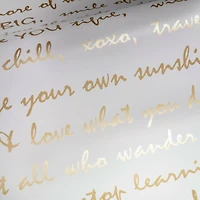 BIG,
YOU
chill, xoxo, trave
e your own sunshi
& love what you d
t all who wander
top learni